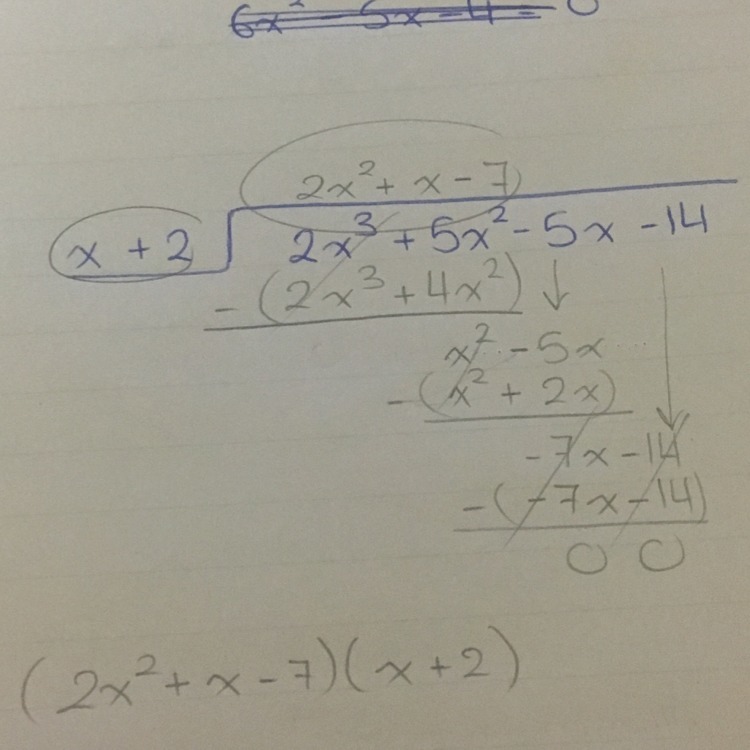 6x² - 5x - 4 = 0
2x² + x - 7
x + 2 2x³ + 5x² - 5x - 14
- (2x³ + 4x²)
x² - 5x
- (x² + 2x)
-7x - 14
- (-7x - 14)
0 0
(2x² + x - 7)(x + 2)